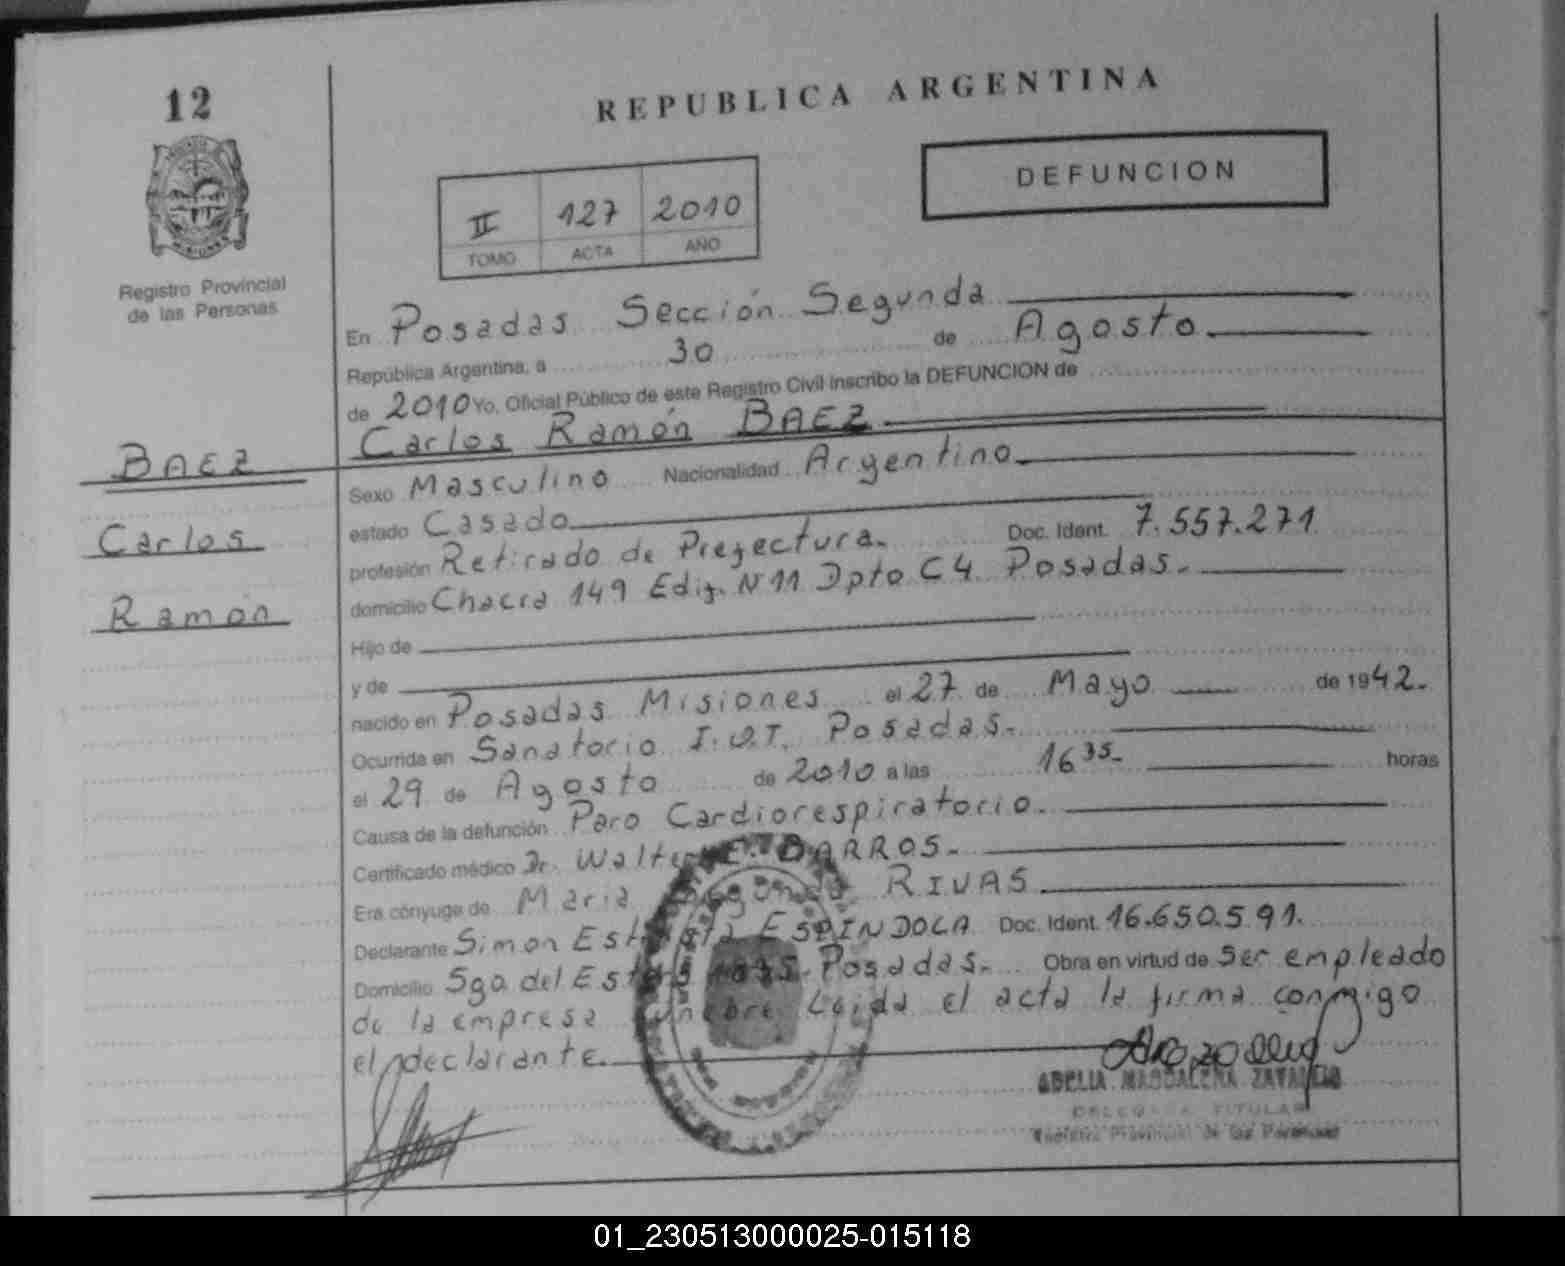 12
REPUBLICA ARGENTINA
DEFUNCION
II 127 2010
TOMO ACTA AÑO
Registro Provincial
de las Personas
En Posadas Sección Segunda
República Argentina, a 30 de Agosto
de 2010 Yo, Oficial Público de este Registro Civil inscribo la DEFUNCION de
Carlos Ramón BAEZ
BAEZ
Carlos
Ramón
Sexo Masculino Nacionalidad Argentino
estado Casado
profesión Retirado de Prefectura. Doc. Ident. 7.557.271
domicilio Chacra 149 Edif. N 11 Dpto C4 Posadas.
Hijo de
y de
nacido en Posadas Misiones el 27 de Mayo de 1942.
Ocurrida en Sanatorio Posadas.
el 29 de Agosto de 2010 a las 16 35 horas
Causa de la defunción Paro Cardiorespiratorio.
Certificado médico Dr. Walter BARROS.
Era cónyuge de Maria RIVAS
Declarante Simon ESPINDOLA Doc. Ident. 16.650.591.
Domicilio Sgo. del Posadas. Obra en virtud de Ser empleado
de la empresa funebre Leida el acta la firma conmigo
el declarante.
ADELIA MAGDALENA
DELEGADA TITULAR
Registro Provincial de las Personas
01_230513000025-015118